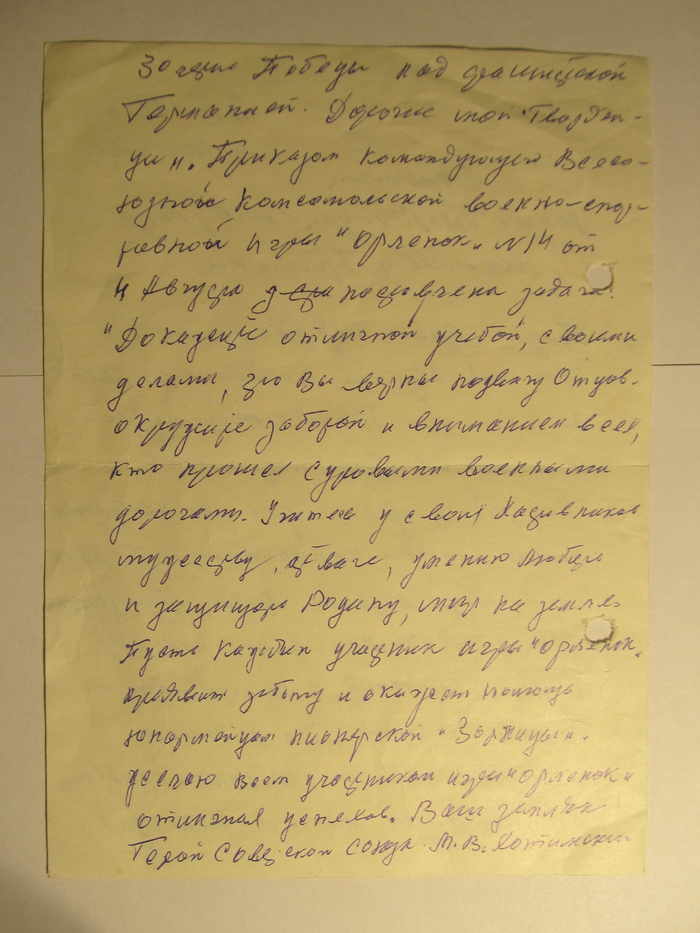 30 летию Победы над фашистской
Германией. Дорогие мои "Гвардей-
цы". Приказом командующего Всесо-
юзной Комсомольской военно-спор-
тивной игры "Орленок" N 14 от
4 Августа поставлена задача:
"Докажите отличной учебой, своими
делами, что Вы верны подвигу Отцов.
окружите заботой и вниманием всех,
кто прошел суровыми военными
дорогами. Учитесь у своих Наставников
мужеству, отваге, умению любить
и защищать Родину, мир на земле.
Пусть каждый участник игры "Орленок"
проявит заботу и окажет помощь
юнармейцам пионерской "Зарницы".
желаю всем участникам игры "Орленок"
отличных успехов. Ваш земляк
Герой Советской Союза М.В. Хотимский